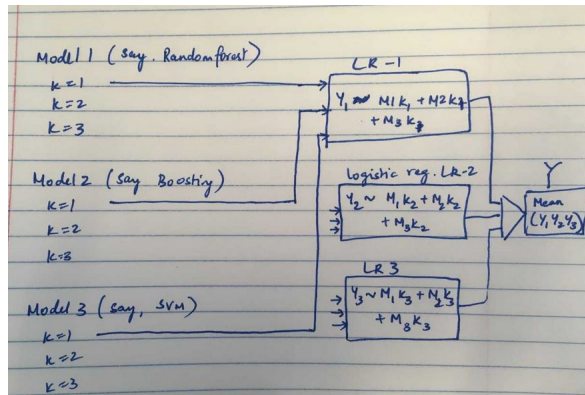 Model 1 (say. Randomforest)
k=1
k=2
k=3
Model 2 (say Boosting)
k=1
k=2
k=3
Model 3 (say, SVM)
k=1
k=2
k=3
LR-1
Y₁ ~ M1k₁ + M2k
+ M₃k
logistic reg. LR-2
Y₂ ~ M₁k₂ + M₂k₂
+ M₃k₂
LR 3
Y₃ ~ M₁k₃ + M₂k₃
+ M₃k₃
Y
Mean
(Y₁Y₂Y₃)